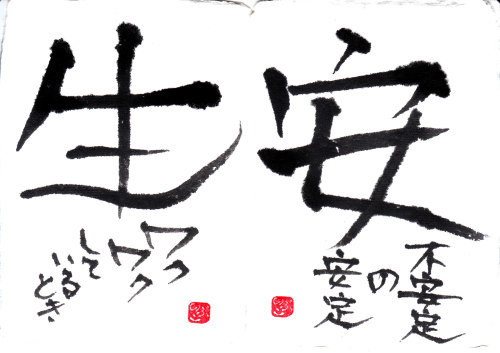 安
不安定
の
安定
生
ワク
ワク
して
いる
とき